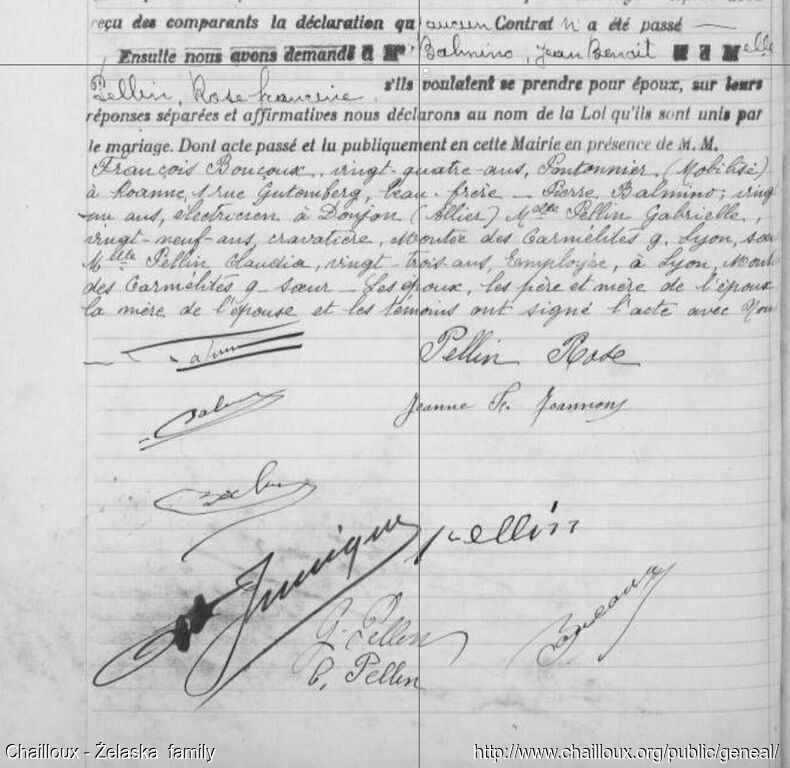 reçu des comparants la déclaration qu'aucun Contrat n'a été passé
Ensuite nous avons demandé à Mr Balmino, Jean Benoit et à Melle
Pellin, Rose Francine, s'ils voulaient se prendre pour époux, sur leurs
réponses séparées et affirmatives nous déclarons au nom de la Loi qu'ils sont unis par
le mariage. Dont acte passé et lu publiquement en cette Mairie en présence de M. M.
François Boucoux, vingt-quatre-ans, Pontonnier (Mobilisé)
à Roanne, 1 rue Gutemberg, beau-frère _ Pierre Balmino, vingt
un ans, électricien à Donjon (Allier) Melle Pellin Gabrielle,
vingt-neuf-ans, cravatière, Montée des Carmélites 9, Lyon, sœu
Melle Pellin Claudia, vingt-trois-ans, Employée, à Lyon, Mont
des Carmélites 9 - sœur _ Les époux, les père et mère de l'époux
la mère de l'épouse et les témoins ont signé l'acte avec Nou
Pellin Rose
Jeanne Joannon
Pellin
G. Pellin
C. Pellin
Chailloux - Żelaska family
http://www.chailloux.org/public/geneal/